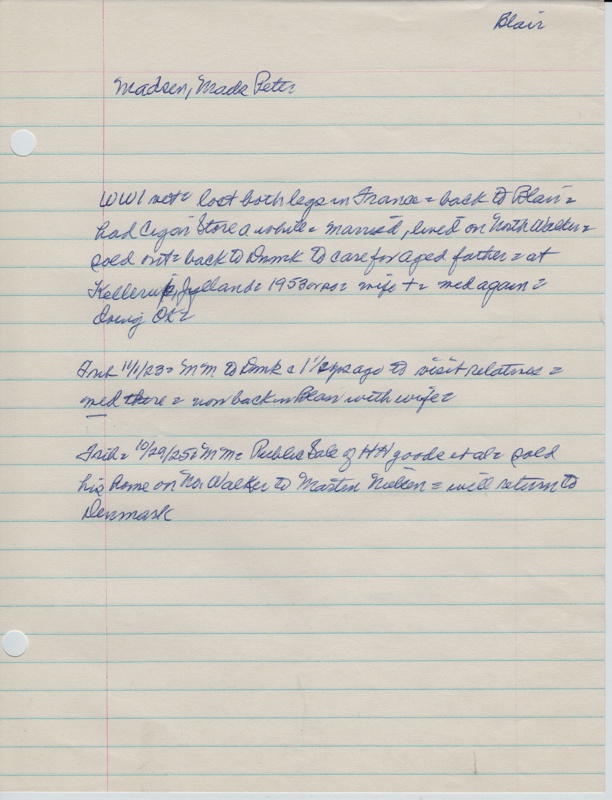 Blair
Madsen, Mads Peter
WW1 vet = lost both legs in France = back to Blair =
had Cigar Store a while = married, lived on North Walker =
sold out = back to Dnmk to care for aged father = at
Jylland = 1953 or so = wife + = med again =
doing OK =
Trib 11/1/23 = MM to Dmk c 1 1/2 yrs ago to visit relatives =
med there = now back in Blair with wife =
Trib = 10/29/25 = MM = Public Sale of HH goods et al = sold
his home on No. Walker to Martin Nielsen = will return to
Denmark